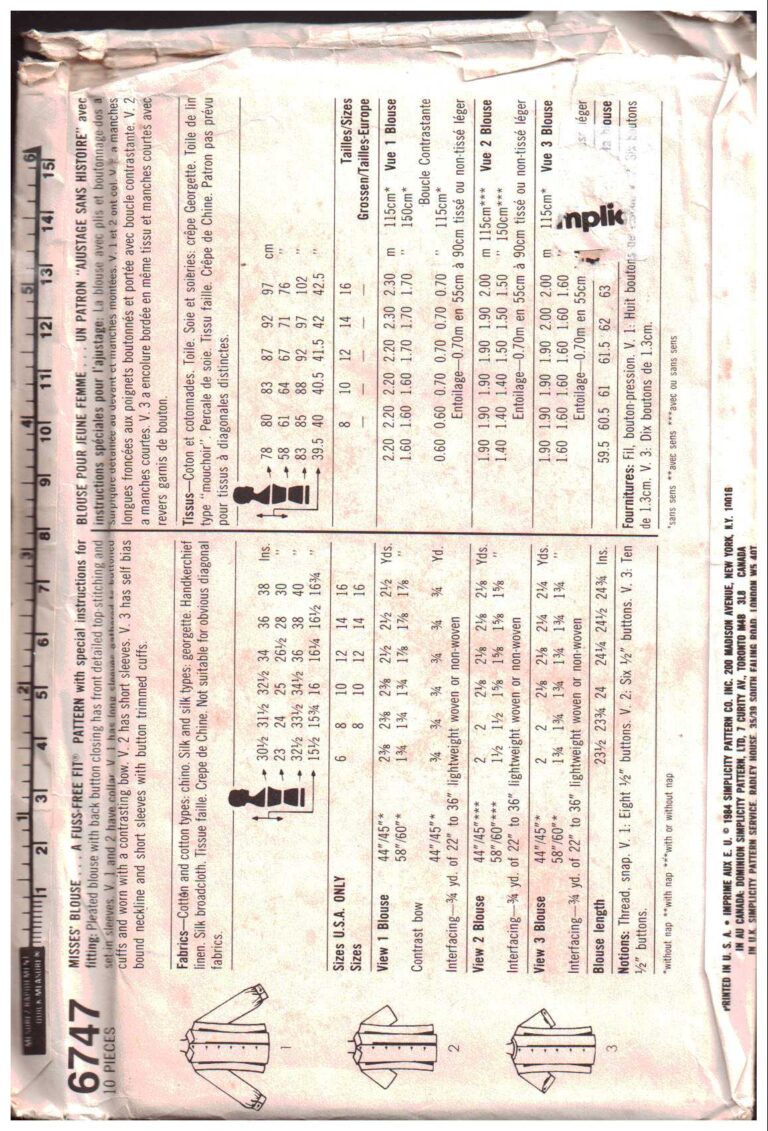 MESUREZ RAPIDEMENT
QUICK MEASURE
1 2 3 4 5 6 7 8 9 10 11 12 13 14 15
6747
10 PIECES
MISSES' BLOUSE . . . A FUSS-FREE FIT® PATTERN with special instructions for
fitting: Pleated blouse with back button closing has front detailed top-stitching and
set-in sleeves. V. 1 and 2 have collar. V. 1 has long sleeves gathered to buttoned
cuffs and worn with a contrasting bow. V. 2 has short sleeves. V. 3 has self bias
bound neckline and short sleeves with button trimmed cuffs.
Fabrics—Cotton and cotton types: chino. Silk and silk types: georgette. Handkerchief
linen. Silk broadcloth. Tissue faille. Crepe de Chine. Not suitable for obvious diagonal
fabrics.
30½ 31½ 32½ 34 36 38 Ins.
23 24 25 26½ 28 30 "
32½ 33½ 34½ 36 38 40 "
15½ 15¾ 16 16¼ 16½ 16¾ "
Sizes U.S.A. ONLY 6 8 10 12 14 16
Sizes 8 10 12 14 16
View 1 Blouse 44"/45"* 2⅜ 2⅜ 2⅜ 2½ 2½ 2½ Yds.
58"/60"* 1¾ 1¾ 1¾ 1⅞ 1⅞ 1⅞ "
Contrast bow 44"/45"* ¾ ¾ ¾ ¾ ¾ ¾ Yd.
Interfacing—¾ yd. of 22" to 36" lightweight woven or non-woven
View 2 Blouse 44"/45"*** 2 2 2⅛ 2⅛ 2⅛ 2⅛ Yds.
58"/60"*** 1½ 1½ 1⅝ 1⅝ 1⅝ 1⅝ "
Interfacing—¾ yd. of 22" to 36" lightweight woven or non-woven
View 3 Blouse 44"/45"* 2 2 2⅛ 2⅛ 2¼ 2¼ Yds.
58"/60"* 1¾ 1¾ 1¾ 1¾ 1¾ 1¾ "
Interfacing—¾ yd. of 22" to 36" lightweight woven or non-woven
Blouse length 23½ 23¾ 24 24¼ 24½ 24¾ Ins.
Notions: Thread, snap. V. 1: Eight ½" buttons. V. 2: Six ½" buttons. V. 3: Ten
½" buttons.
*without nap **with nap ***with or without nap
1
2
3
BLOUSE POUR JEUNE FEMME . . . UN PATRON "AJUSTAGE SANS HISTOIRE" avec
instructions spéciales pour l'ajustage: La blouse avec plis et boutonnage dos a
surpiqûre détaillée au devant et manches montées. V. 1 et 2 ont col. V. 1 a manches
longues froncées aux poignets boutonnés et portée avec boucle contrastante. V. 2
a manches courtes. V. 3 a encolure bordée en même tissu et manches courtes avec
revers garnis de bouton.
Tissus—Coton et cotonnades. Toile. Soie et soieries: crêpe Georgette. Toile de lin
type "mouchoir". Percale de soie. Tissu faille. Crêpe de Chine. Patron pas prévu
pour tissus à diagonales distinctes.
78 80 83 87 92 97 cm
58 61 64 67 71 76 "
83 85 88 92 97 102 "
39.5 40 40.5 41.5 42 42.5 "
8 10 12 14 16 Tailles/Sizes
— — — — — Grossen/Tailles-Europe
2.20 2.20 2.20 2.20 2.30 2.30 m 115cm* Vue 1 Blouse
1.60 1.60 1.60 1.70 1.70 1.70 " 150cm*
Boucle Contrastante
0.60 0.60 0.70 0.70 0.70 0.70 " 115cm*
Entoilage—0.70m en 55cm à 90cm tissé ou non-tissé léger
1.90 1.90 1.90 1.90 1.90 2.00 m 115cm*** Vue 2 Blouse
1.40 1.40 1.40 1.50 1.50 1.50 " 150cm***
Entoilage—0.70m en 55cm à 90cm tissé ou non-tissé léger
1.90 1.90 1.90 1.90 2.00 2.00 m 115cm* Vue 3 Blouse
1.60 1.60 1.60 1.60 1.60 1.60 "
Entoilage—0.70m en 55cm léger
mplic
59.5 60.5 61 61.5 62 63 ouse
Fournitures: Fil, bouton-pression. V. 1: Huit boutons Six boutons
de 1.3cm. V. 3: Dix boutons de 1.3cm.
*sans sens **avec sens ***avec ou sans sens
PRINTED IN U. S. A. • IMPRIME AUX E. U. © 1984 SIMPLICITY PATTERN CO. INC. 200 MADISON AVENUE, NEW YORK, N.Y. 10016
IN AU CANADA: DOMINION SIMPLICITY PATTERN, LTD, 7 CURITY AV., TORONTO M4B 3L8 CANADA
IN U.K. SIMPLICITY PATTERN SERVICE. RADLEY HOUSE. 35/39 SOUTH EALING ROAD. LONDON W5 4QT